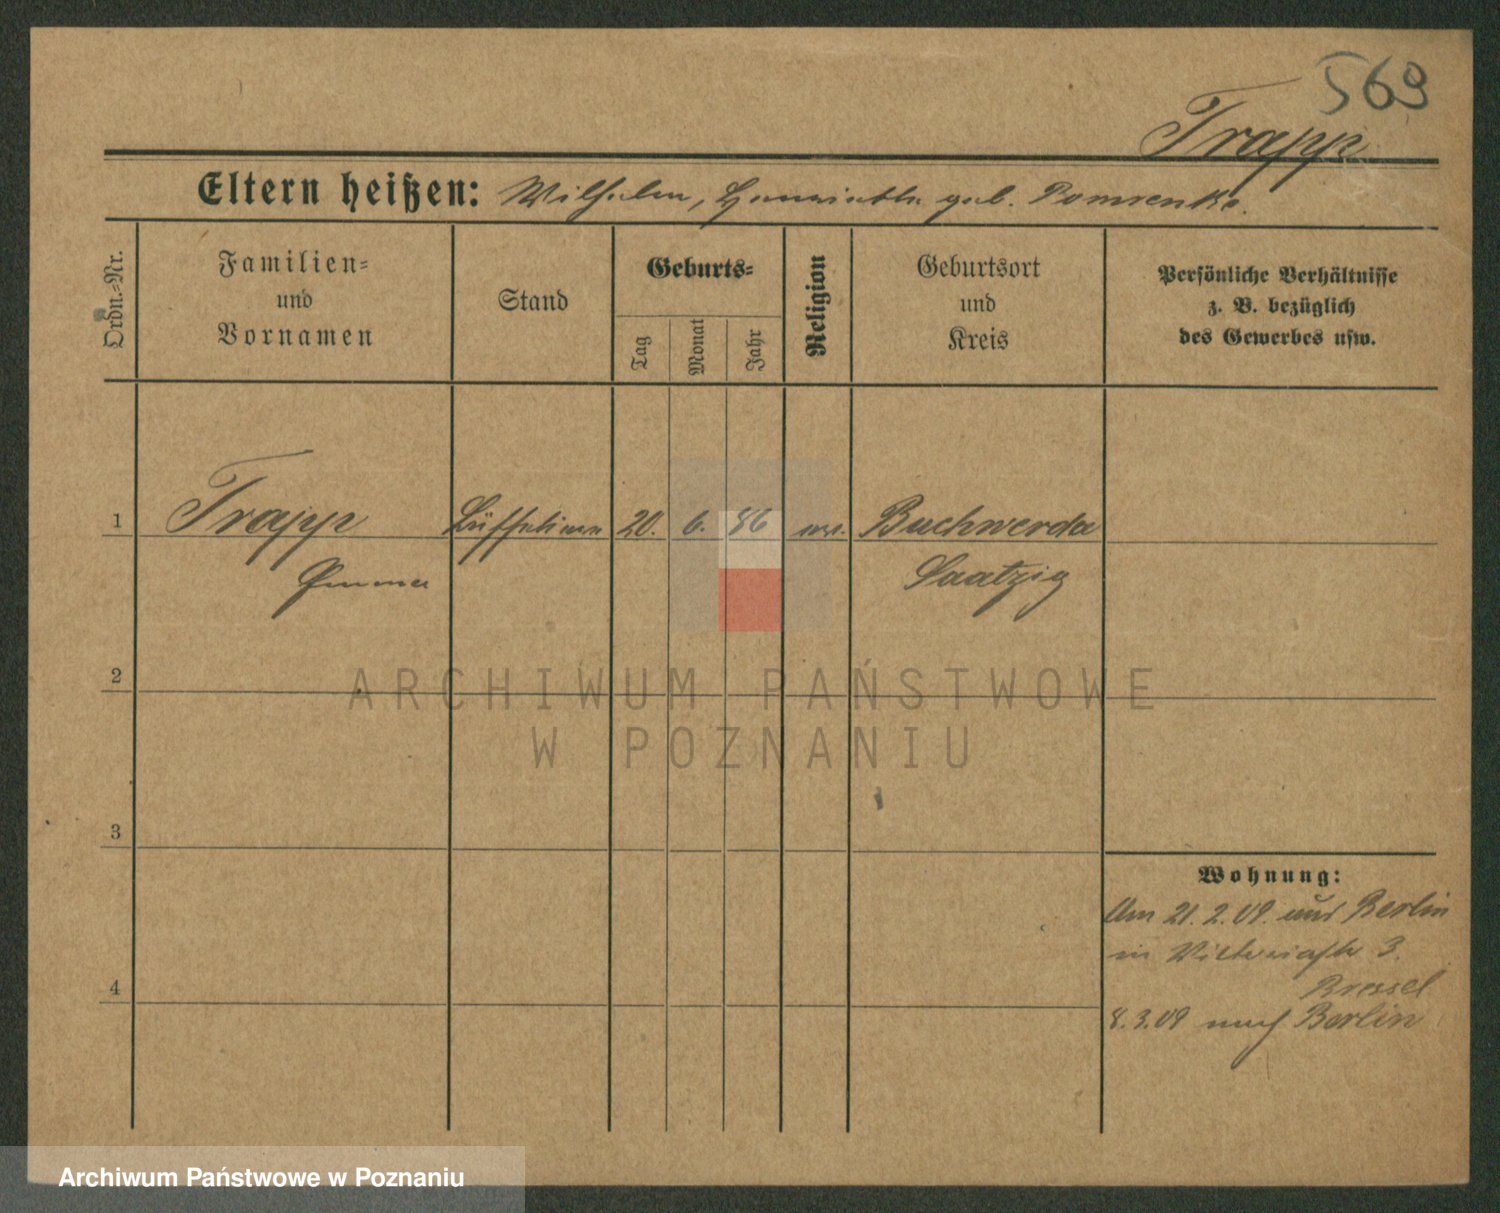 569
Trapp
Eltern heißen: Wilhelm, Henriette geb. Pomrenke.
Ordn.-Nr.
Familien-
und
Vornamen
Stand
Geburts-
Tag
Monat
Jahr
Religion
Geburtsort
und
Kreis
Persönliche Verhältnisse
z. B. bezüglich
des Gewerbes usw.
1 Trapp 20. 6. 86 ev. Buchwerda
Emma Saatzig
2
ARCHIWUM PAŃSTWOWE
W POZNANIU
3
Wohnung:
Am 21.2.09. aus Berlin
in Victoriastr 3.
4
8.3.09 nach Berlin
Archiwum Państwowe w Poznaniu